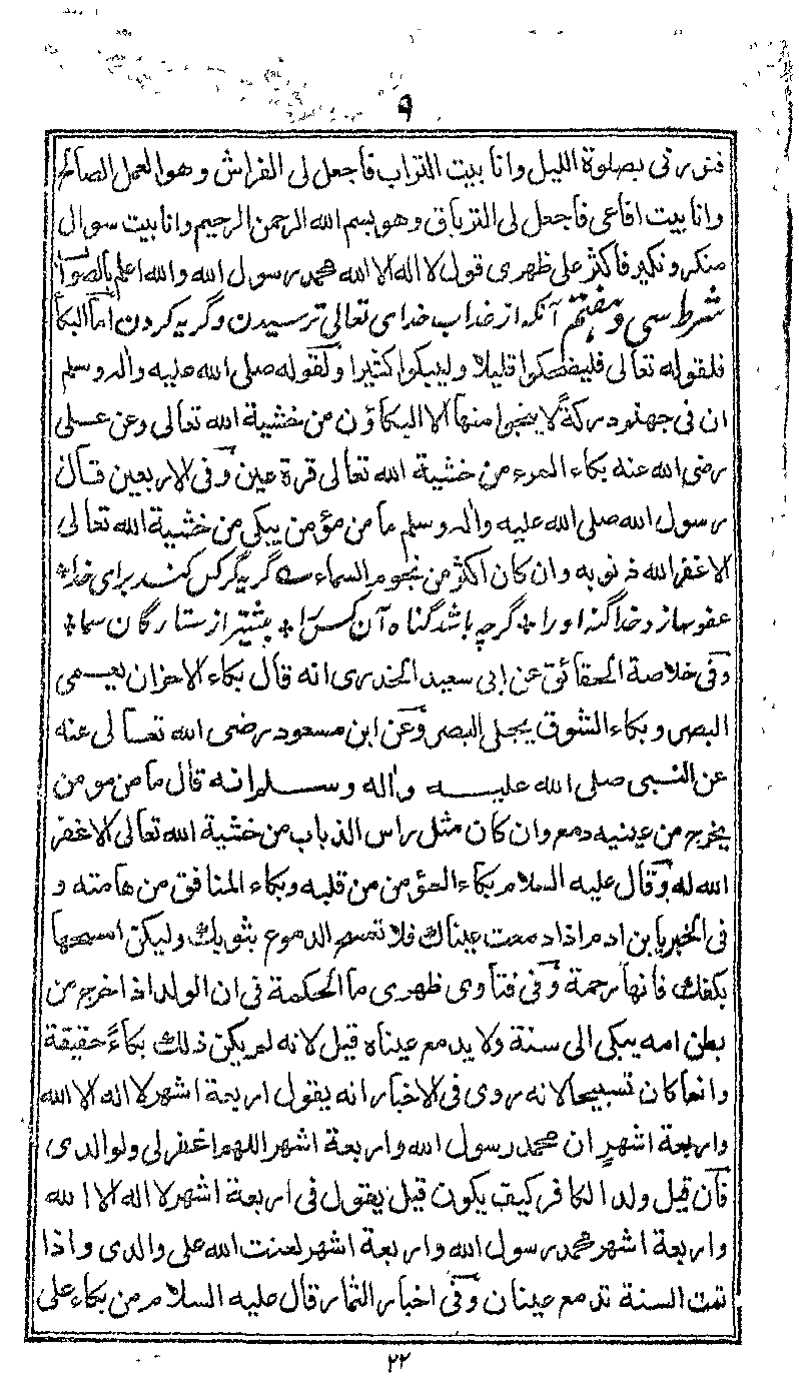 ٩
فنورنی بصلوة اللیل وانا بیت التراب فاجعل لی الفراش وهو العمل الصالح
وانا بیت افاعی فاجعل لی التریاق وهو بسم الله الرحمن الرحیم وانا بیت سوال
منکر ونکیر فاکثر علی ظهری قول لا اله الا الله محمد رسول الله والله اعلم بالصواب
شرط سی و هفتم آنکه از عذاب خدای تعالی ترسیدن و گریه کردن اما البکاء
فلقوله تعالی فلیضحکوا قلیلا ولیبکوا کثیرا ولقوله صلی الله علیه واله وسلم
ان فی جهنم درکة لا ینجوا منها الا البکاؤن من خشیة الله تعالی وعن علی
رضی الله عنه بکاء المرء من خشیة الله تعالی قرة عین وفی الاربعین قال
رسول الله صلی الله علیه واله وسلم ما من مؤمن یبکی من خشیة الله تعالی
الا غفر الله ذنوبه وان کان اکثر من نجوم السماء گریه گر کس کند برای خدا
عفو سازد خدا گنه او را گرچه باشد گناه آن کس را بیشتر از ستارگان سما
وفی خلاصة الحقائق عن ابی سعید الخدری انه قال بکاء الاحزان یعمی
البصر وبکاء الشوق یجلی البصر وعن ابن مسعود رضی الله تعالی عنه
عن النبی صلی الله علیه واله وسلم انه قال ما من مومن
یخرج من عینیه دمع وان کان مثل راس الذباب من خشیة الله تعالی الا غفر
الله له وقال علیه السلام بکاء المؤمن من قلبه وبکاء المنافق من هامته و
فی الخبر یا بن ادم اذا دمعت عیناك فلا تمسح الدموع بثوبك ولیکن امسحها
بکفك فانها رحمة وفی فتاوی ظهری ما الحکمة فی ان الولد اذا خرج من
بطن امه یبکی الی سنة ولا یدمع عیناه قیل لانه لم یکن ذلك بکاءً حقیقة
وانما کان تسبیحا لانه روی فی الاخبار انه یقول اربعة اشهر لا اله الا الله
واربعة اشهر ان محمد رسول الله واربعة اشهر اللهم اغفر لی ولوالدی
فان قیل ولد الکافر کیف یکون قیل یقول فی اربعة اشهر لا اله الا الله
واربعة اشهر محمد رسول الله واربعة اشهر لعنت الله علی والدی واذا
تمت السنة تدمع عینان وفی اخبار الثمار قال علیه السلام من بکاء علی
٢٢